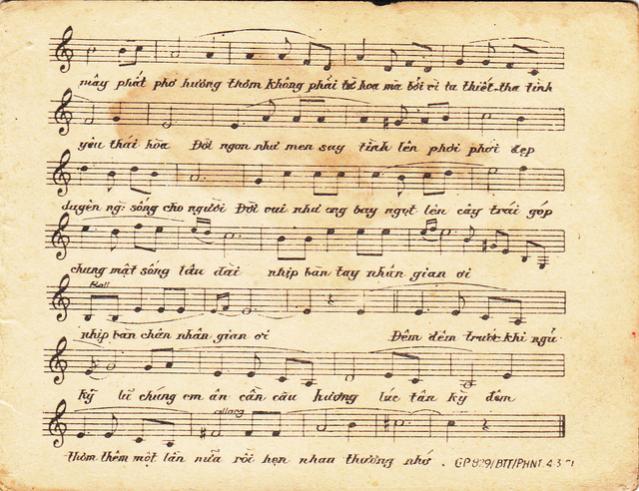 mây phất phơ hương thơm không phải từ hoa mà bởi vì ta thiết tha tình
yêu thái hòa Đời ngon như men say tình lên phơi phới đẹp
duyên người sống cho người Đời vui như ong bay ngọt lên cây trái góp
chung mật sống lâu dài nhịp bàn tay nhân gian ơi
Rall
nhịp bàn chân nhân gian ơi Đêm đêm trước khi ngủ
kỹ lũ chúng em ân cần câu hương lúc tân kỳ đêm
allarg
thơm thêm một lần nữa rồi hẹn nhau thương nhớ . GP 829/BTT/PHNT 4 3 71